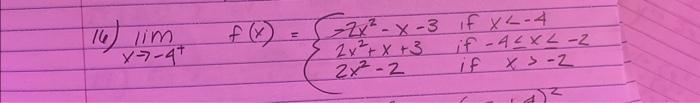 16) lim x→-4⁺ f(x) = { -2x² - x - 3 if x < -4
2x² + x + 3 if -4 ≤ x < -2
2x² - 2 if x > -2
)²